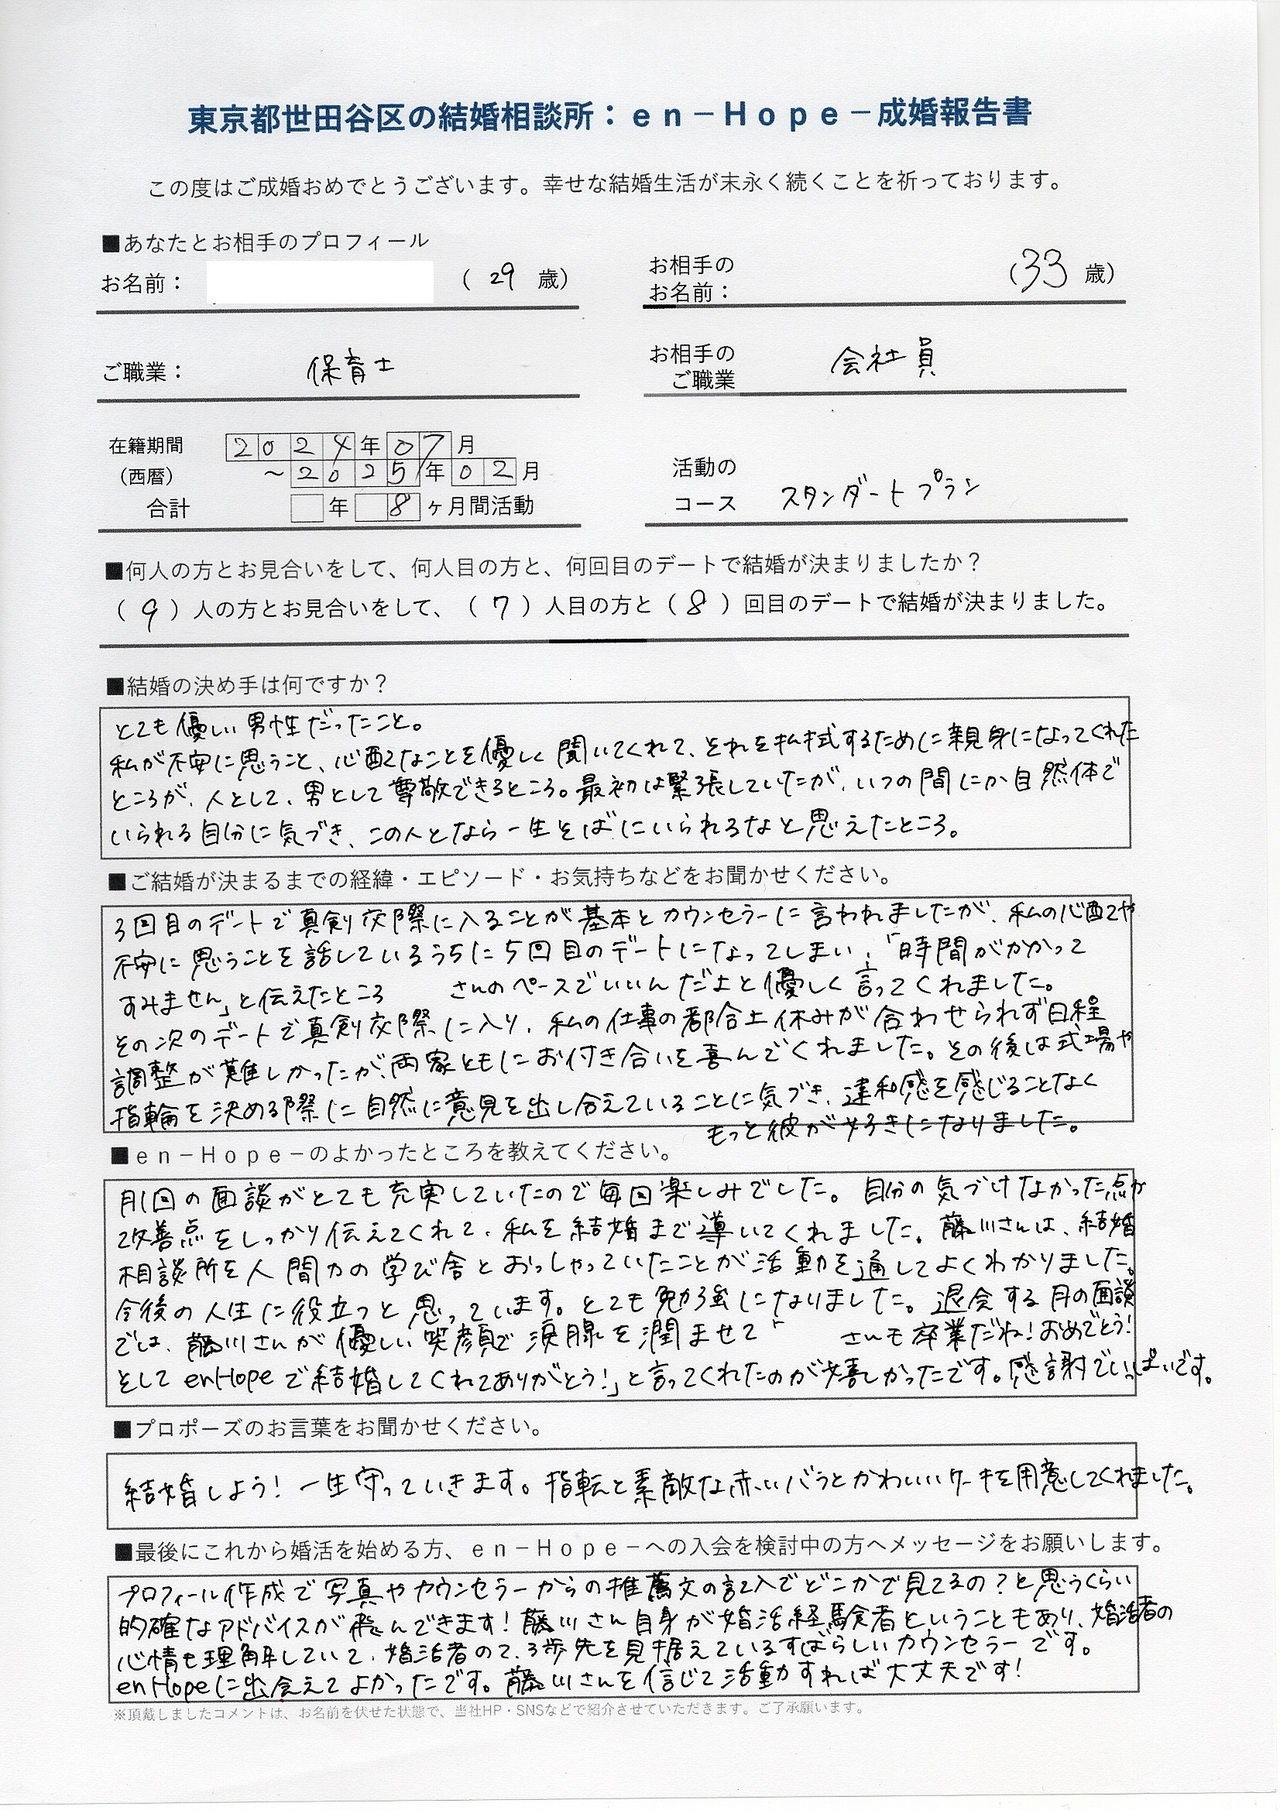 東京都世田谷区の結婚相談所：ｅｎ－Ｈｏｐｅ－成婚報告書
この度はご成婚おめでとうございます。幸せな結婚生活が末永く続くことを祈っております。
■あなたとお相手のプロフィール
お名前： （ 29 歳）
お相手の
お名前： （33 歳）
ご職業： 保育士
お相手の
ご職業 会社員
在籍期間 2024年07月
（西暦） ～2025年02月
合計 年 8ヶ月間活動
活動の
コース スタンダートプラン
■何人の方とお見合いをして、何人目の方と、何回目のデートで結婚が決まりましたか？
（ 9 ）人の方とお見合いをして、（ 7 ）人目の方と（ 8 ）回目のデートで結婚が決まりました。
■結婚の決め手は何ですか？
とても優しい男性だったこと。
私が不安に思うこと、心配なことを優しく聞いてくれて、それを払拭するために親身になってくれた
ところが、人として、男として尊敬できるところ。最初は緊張していたが、いつの間にか自然体で
いられる自分に気づき、この人となら一生そばにいられるなと思えたところ。
■ご結婚が決まるまでの経緯・エピソード・お気持ちなどをお聞かせください。
3回目のデートで真剣交際に入ることが基本とカウンセラーに言われましたが、私の心配や
不安に思うことを話しているうちに5回目のデートになってしまい、「時間がかかって
すみません」と伝えたところ さんのペースでいいんだよと優しく言ってくれました。
その次のデートで真剣交際に入り、私の仕事の都合上休みが合わせられず日程
調整が難しかったが、両家ともにお付き合いを喜んでくれました。その後は式場や
指輪を決める際に自然に意見を出し合えていることに気づき、違和感を感じることなく
もっと彼が好きになりました。
■ｅｎ－Ｈｏｐｅ－のよかったところを教えてください。
月1回の面談がとても充実していたので毎回楽しみでした。自分の気づけなかった点や
改善点をしっかり伝えてくれて、私を結婚まで導いてくれました。藤川さんは、結婚
相談所を人間力の学び舎とおっしゃっていたことが活動を通してよくわかりました。
今後の人生に役立つと思っています。とても勉強になりました。退会する月の面談
では、藤川さんが優しい笑顔で涙腺を潤ませて「 さんも卒業だね！おめでとう！
そしてenHopeで結婚してくれてありがとう！」と言ってくれたのが嬉しかったです。感謝でいっぱいです。
■プロポーズのお言葉をお聞かせください。
結婚しよう！一生守っていきます。指輪と素敵な赤いバラとかわいいケーキを用意してくれました。
■最後にこれから婚活を始める方、ｅｎ－Ｈｏｐｅ－への入会を検討中の方へメッセージをお願いします。
プロフィール作成で写真やカウンセラーからの推薦文の記入でどこかで見てるの？と思うくらい
的確なアドバイスが飛んできます！藤川さん自身が婚活経験者ということもあり、婚活者の
心情も理解していて、婚活者の2、3歩先を見据えているすばらしいカウンセラーです。
enHopeに出会えてよかったです。藤川さんを信じて活動すれば大丈夫です！
※頂戴しましたコメントは、お名前を伏せた状態で、当社HP・SNSなどで紹介させていただきます。ご了承願います。